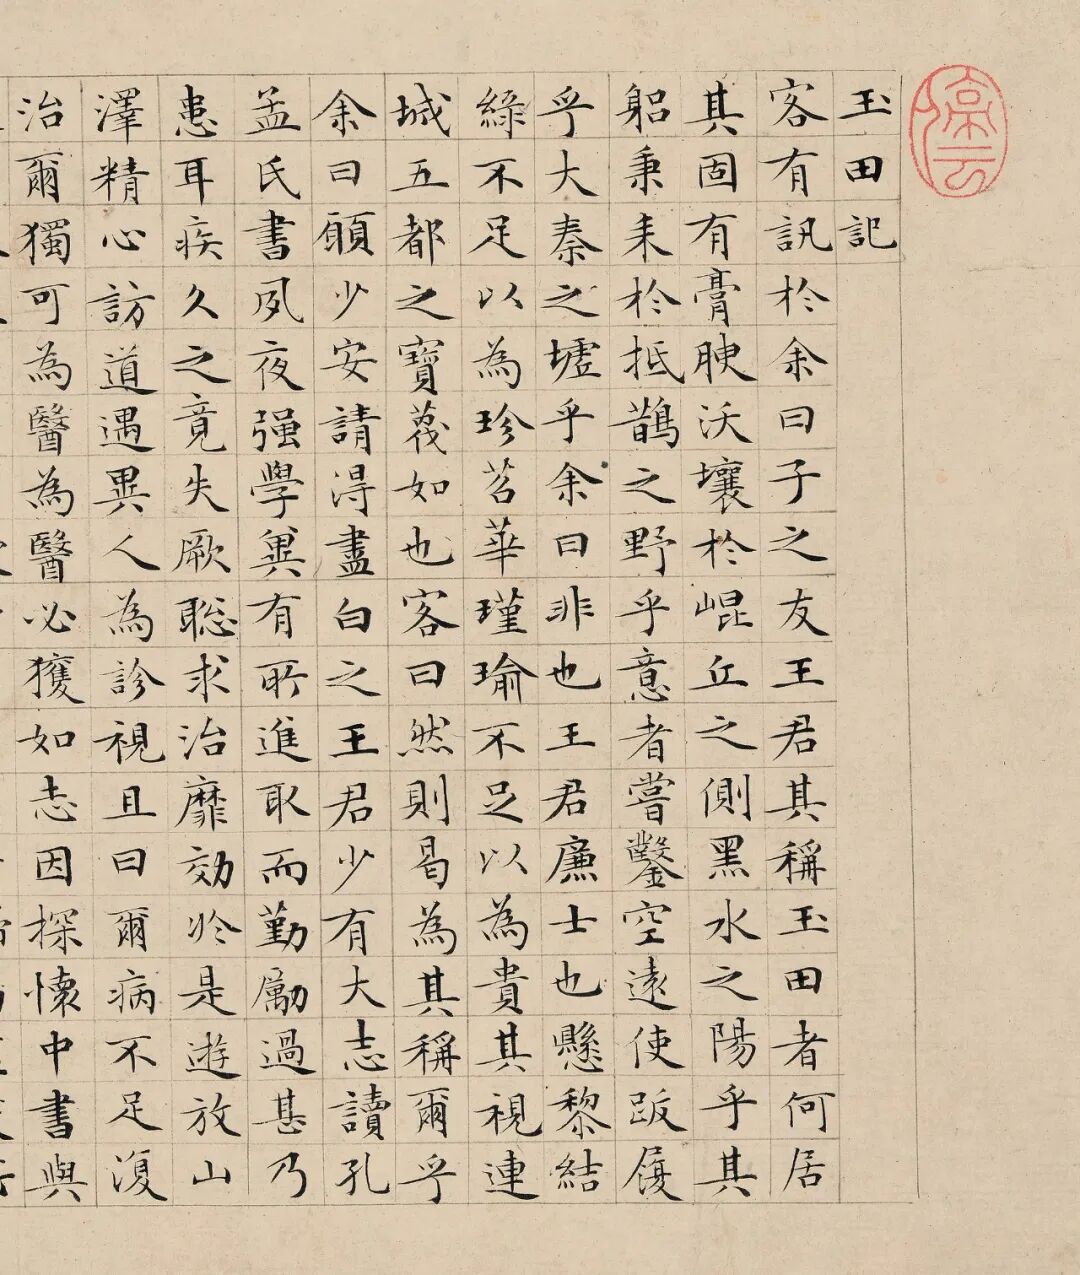 停云
玉田記
客有訊於余曰子之友王君其稱玉田者何居
其固有膏腴沃壤於崐丘之側黑水之陽乎其
躳秉耒於抵鵲之野乎意者嘗鑿空遠使跋履
乎大秦之墟乎余曰非也王君廉士也懸黎結
綠不足以為珍苕華瑾瑜不足以為貴其視連
城五都之寶蔑如也客曰然則曷為其稱爾乎
余曰願少安請淂盡白之王君少有大志讀孔
孟氏書夙夜强學兾有所進取而勤勵過甚乃
患耳疾久之竟失厥聡求治靡効於是遊放山
澤精心訪道遇異人為診視且曰爾病不足復
治爾獨可為醫為醫必獲如志因探懷中書與